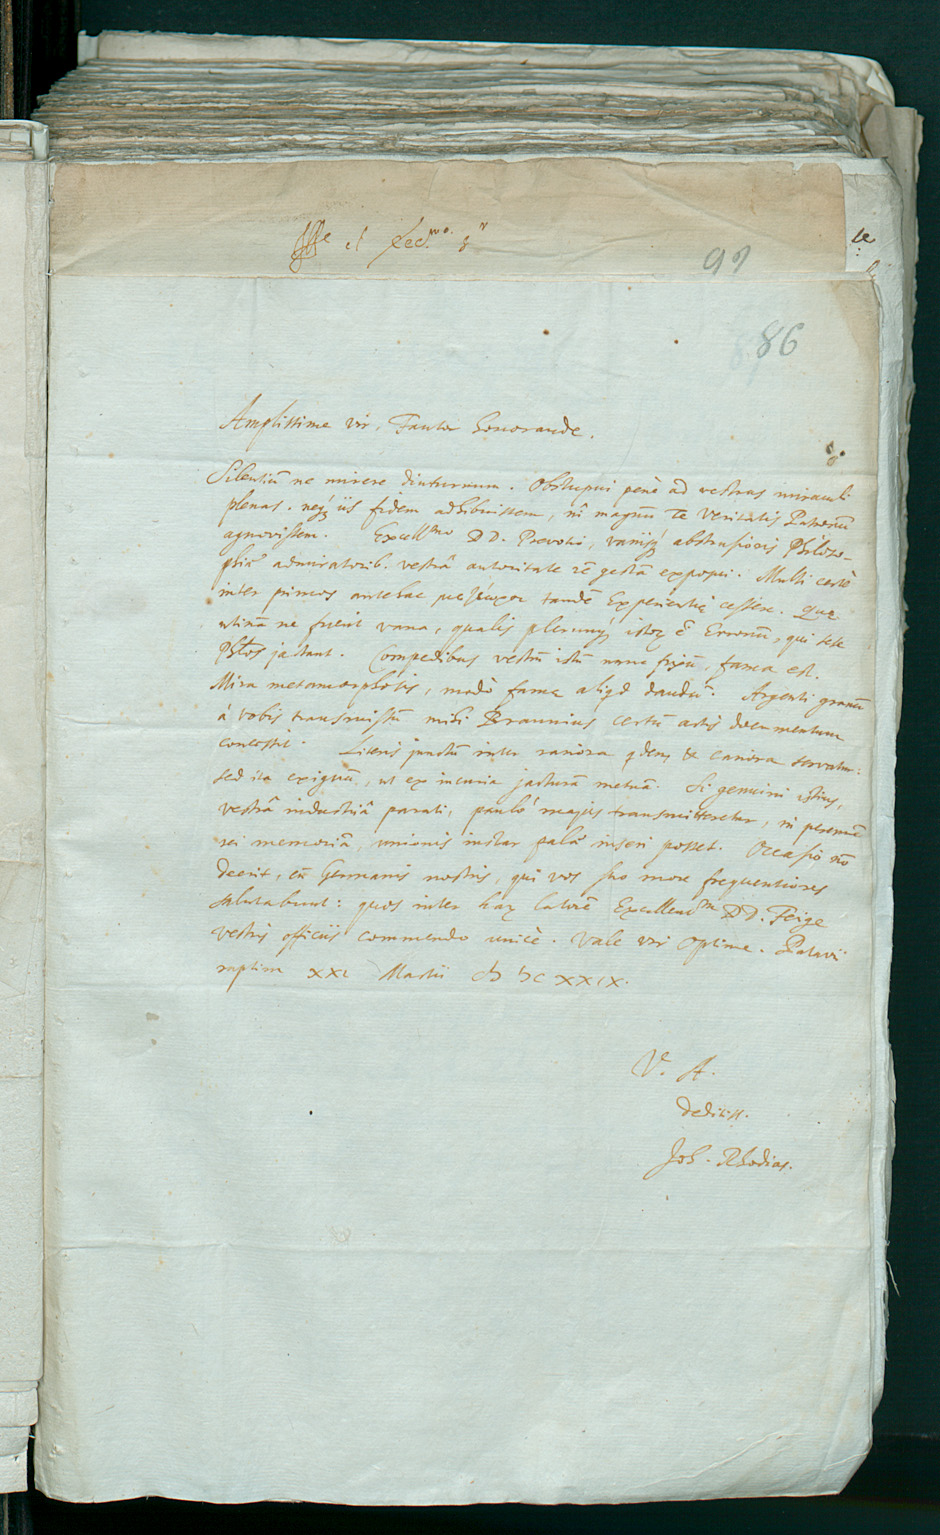 et
99
86
Amplissime vir, Fautor honorande.
Silentiũ ne mirere diuturnum. Obstupui penè ad vestras miraculi
plenas. neq; iis fidem adhibuissem, nî magnũ Te Veritatis Patronũ
agnovissem. Excell.mo DD. Prevotio, variisq; abstrusioris Philoso-
phiæ admiratorib. vestrâ autoritate rẽ gestã exposui. Multi certè
inter primos antehac tandẽ Experientię cessere. Quę
utinã ne fuerit vana, qualis plerunq; istoꝝ ẽ Erronũ, qui sese
jactant. Compedibus vestrũ istũ nunc fixũ, fama est.
Mira metamorphosis, modò famę aliqd dandũ. Argenti granũ
à vobis transmissũ mihi Braunius certũ artis documentum
concessit. Literis junctũ inter rariora qdem & cariora servatur:
sed ita exiguũ, ut ex incuria jacturã metuã. Si genuini istius,
vestrâ industriâ parati, paulò majus transmitteretur, in perennẽ
rei memoriã, unionis instar palã inseri posset. Occasio nõ
deerit, cũ Germanis nostris, qui vos suo more frequentiores
salutabunt: quos inter harũ latorẽ Excellent.m DD. Feige
vestris officiis commendo unicè. Vale vir optime. Patavii
raptim XXI Martii CIↃ IↃC XXIX.
V. A.
deditiss.
Joh. Rhodius.